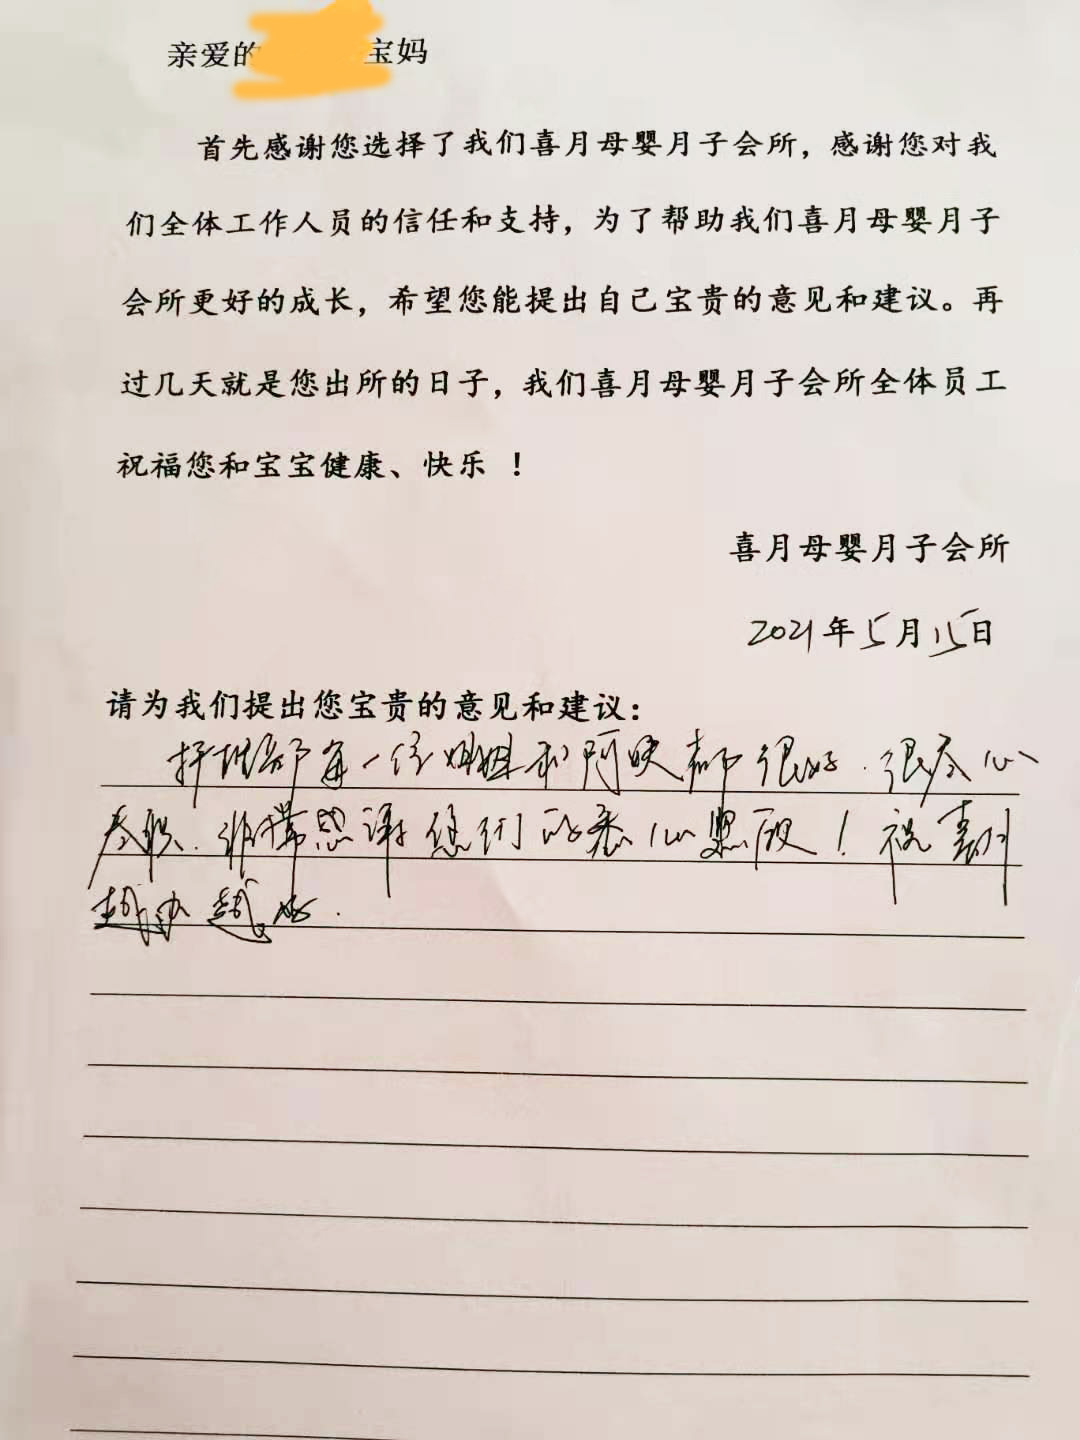 亲爱的 宝妈
首先感谢您选择了我们喜月母婴月子会所，感谢您对我
们全体工作人员的信任和支持，为了帮助我们喜月母婴月子
会所更好的成长，希望您能提出自己宝贵的意见和建议。再
过几天就是您出所的日子，我们喜月母婴月子会所全体员工
祝福您和宝宝健康、快乐 ！
喜月母婴月子会所
2021年5月15日
请为我们提出您宝贵的意见和建议：
护理部每一位姐姐和阿姨都很好.很尽心
尽职.非常感谢您们的悉心照顾！祝喜月
越办越好.